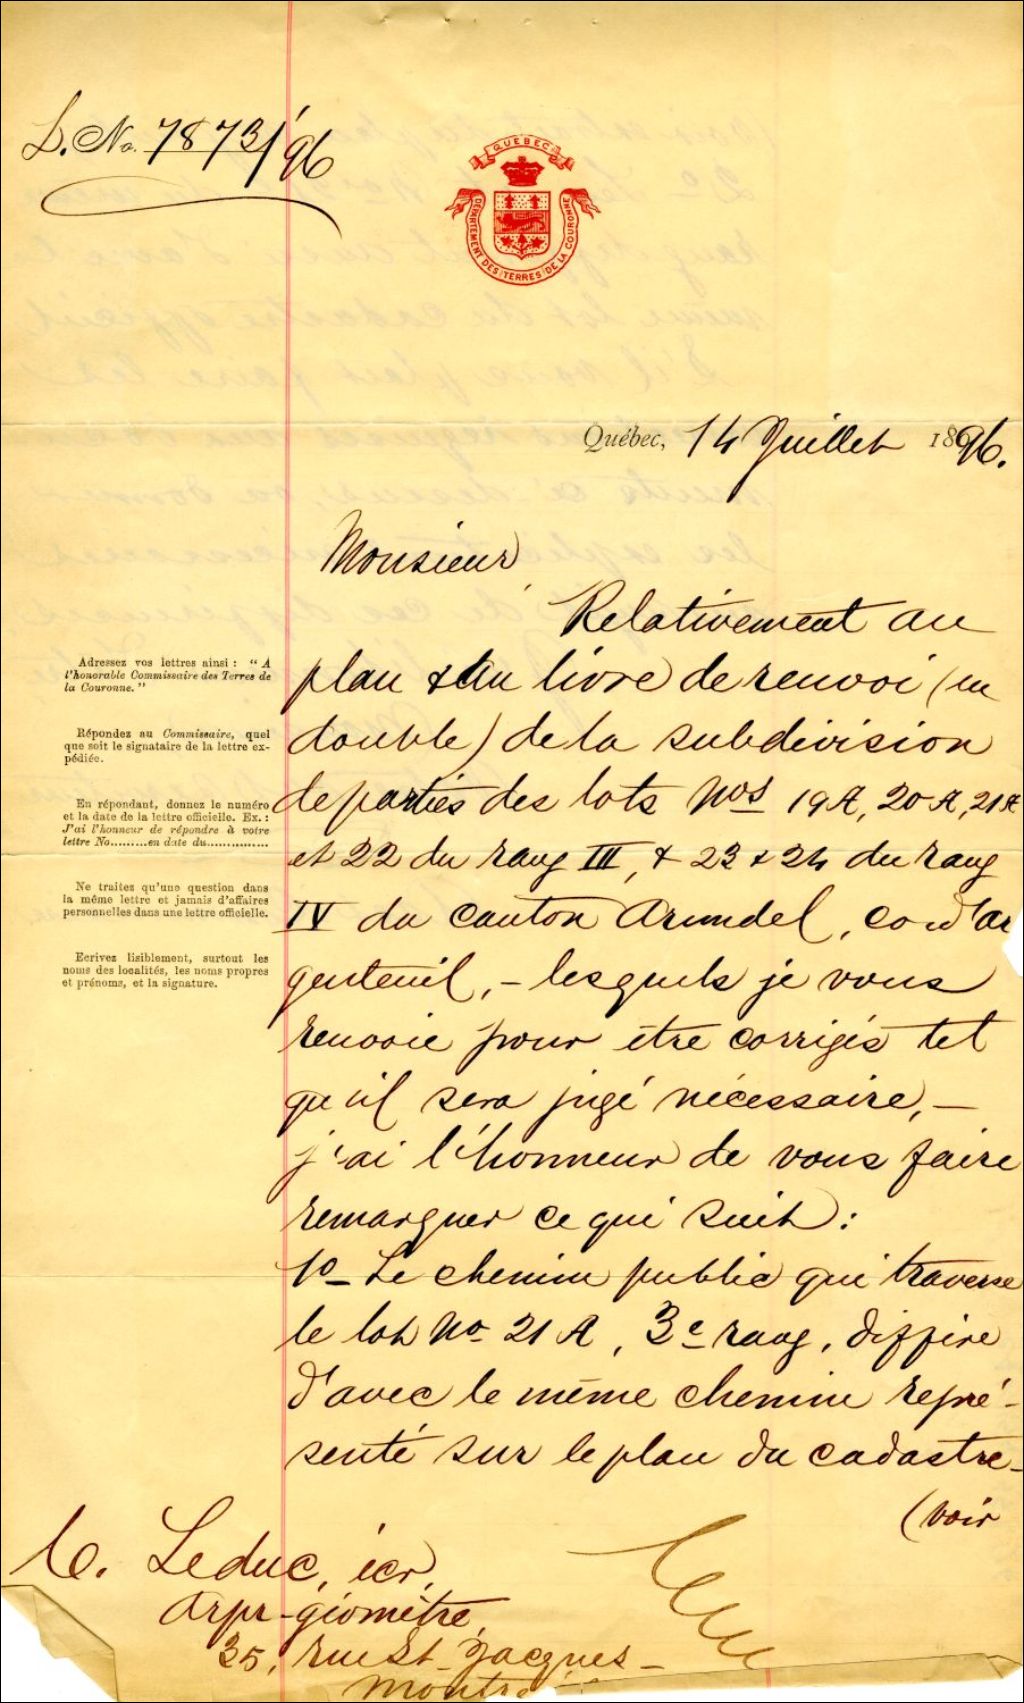 L. No. 7873/96
QUEBEC
DEPARTEMENT DES TERRES DE LA COURONNE
Québec, 14 Juillet 1896.
Monsieur
Relativement au
plan & au livre de renvoi (en
double) de la subdivision
de parties des lots Nos 19A, 20A, 21A
et 22 du rang III, & 23 & 24 du rang
IV du canton Arundel, co d'Ar
genteuil, - lesquels je vous
renvoie pour être corrigés tel
qu'il sera jugé nécessaire, -
j'ai l'honneur de vous faire
remarquer ce qui suit :
1o - Le chemin public qui traverse
le lot No 21 A, 3e rang, diffère
d'avec le même chemin repré-
senté sur le plan du cadastre -
(voir
Adressez vos lettres ainsi : "A
l'honorable Commissaire des Terres de
la Couronne."
Répondez au Commissaire, quel
que soit le signataire de la lettre ex-
pédiée.
En répondant, donnez le numéro
et la date de la lettre officielle. Ex. :
J'ai l'honneur de répondre à votre
lettre No.........en date du...............
Ne traitez qu'une question dans
la même lettre et jamais d'affaires
personnelles dans une lettre officielle.
Ecrivez lisiblement, surtout les
noms des localités, les noms propres
et prénoms, et la signature.
C. Leduc, écr,
Arpr-géomètre,
35, rue St-Jacques -
Montré